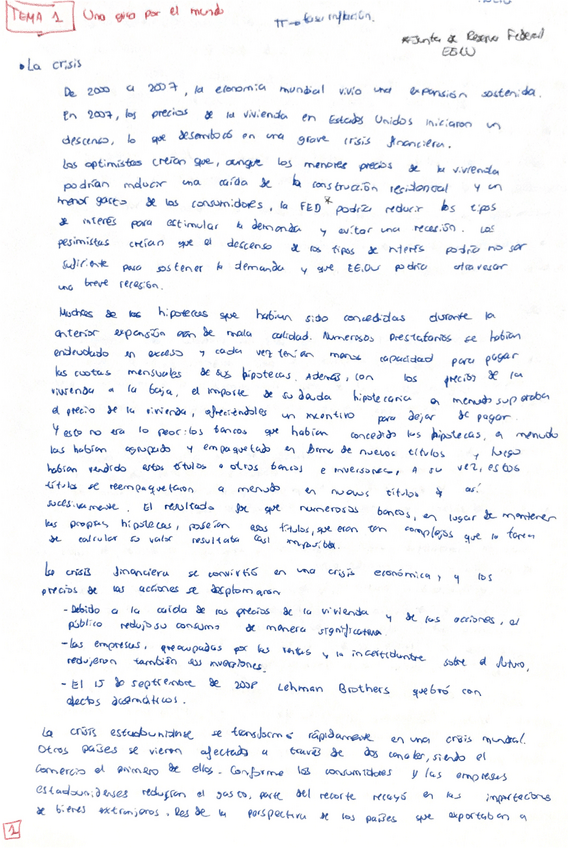 TEMA 1 Una gira por el mundo
π → tasa inflación.
*Junta de Reserva Federal
EEUU
• La crisis
De 2000 a 2007, la economía mundial vivió una expansión sostenida.
En 2007, los precios de la vivienda en Estados Unidos iniciaron un
descenso, lo que desembocó en una grave crisis financiera.
Los optimistas creían que, aunque los menores precios de la vivienda
podrían inducir una caída de la construcción residencial y un
menor gasto de los consumidores, la FED* podría reducir los tipos
de interés para estimular la demanda y evitar una recesión. Los
pesimistas creían que el descenso de los tipos de interés podría no ser
suficiente para sostener la demanda y que EE.UU podría atravesar
una breve recesión.
Muchas de las hipotecas que habían sido concedidas durante la
anterior expansión eran de mala calidad. Numerosos prestatarios se habían
endeudado en exceso y cada vez tenían menos capacidad para pagar
las cuotas mensuales de sus hipotecas. Además, con los precios de la
vivienda a la baja, el importe de su deuda hipotecaria a menudo superaba
el precio de la vivienda, ofreciéndoles un incentivo para dejar de pagar.
Y esto no era lo peor: los bancos que habían concedido las hipotecas, a menudo
las habían agrupado y empaquetado en forma de nuevos títulos y luego
habían vendido estos títulos a otros bancos e inversores, A su vez, estos
títulos se reempaquetaron a menudo en nuevos títulos y así
sucesivamente. El resultado fue que numerosos bancos, en lugar de mantener
las propias hipotecas, poseían esos títulos, que eran tan complejos que la tarea
de calcular su valor resultaba casi imposible.
La crisis financiera se convirtió en una crisis económica, y los
precios de las acciones se desplomaron
- Debido a la caída de los precios de la vivienda y de las acciones, el
público redujo su consumo de manera significativa.
- Las empresas, preocupadas por las ventas y la incertidumbre sobre el futuro,
redujeron también sus inversiones.
- El 15 de septiembre de 2008 Lehman Brothers quebró con
efectos dramáticos.
La crisis estadounidense se transformó rápidamente en una crisis mundial.
Otros países se vieron afectado a través de dos canales, siendo el
comercio el primero de ellos. Conforme los consumidores y las empresas
estadounidenses redujeran el gasto, parte del recorte recayó en las importaciones
de bienes extranjeros. Desde la perspectiva de los países que exportaban a
1